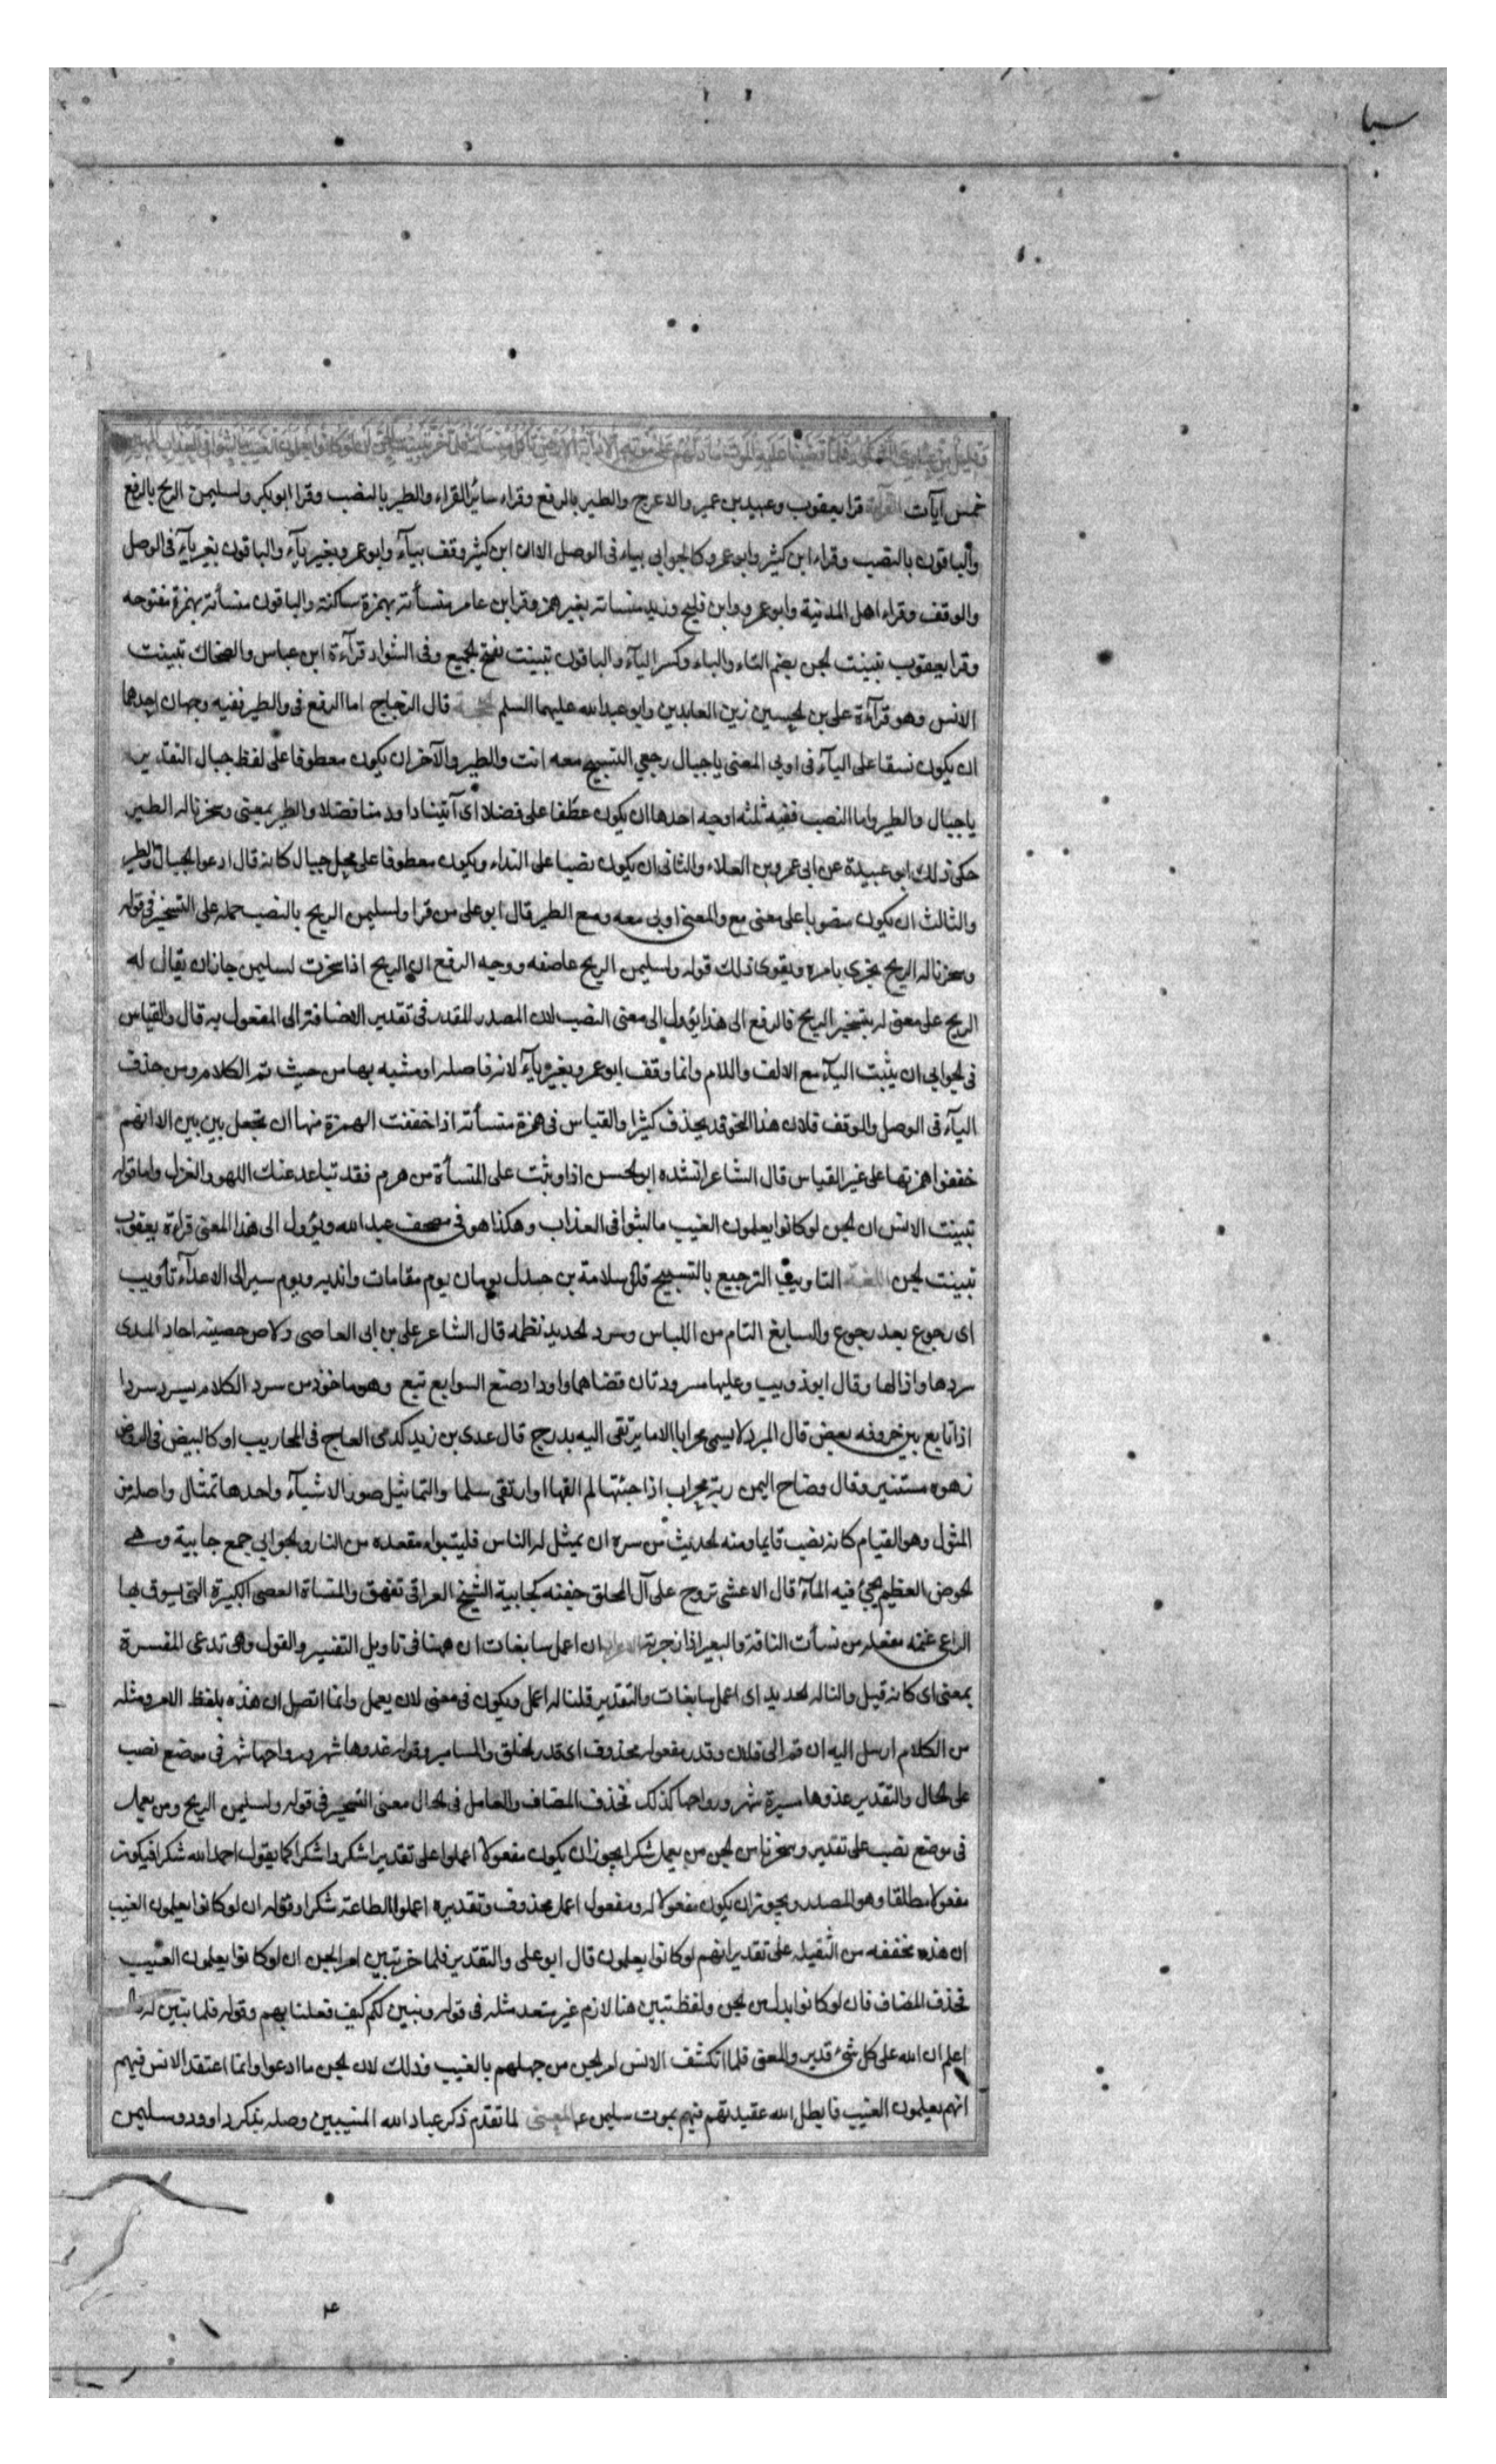 سبا
وقليل من عبادي الشكور فلما قضينا عليه الموت ما دلهم على موته الا دابة الارض تاكل منساته فلما خر تبينت الجن ان لو كانوا يعلمون الغيب ما لبثوا في العذاب المهين
خمس ايات القراءة قرا يعقوب وعبيد بن عمير والاعرج والطير بالرفع وقراء سائر القراء والطير بالنصب وقرا ابو بكر ولسليمن الريح بالرفع
والباقون بالنصب وقراء ابن كثير وابو عمرو كالجوابي بياء في الوصل الا ان ابن كثير وقف بياء وابو عمرو بغير ياء والباقون بغير ياء في الوصل
والوقف وقراء اهل المدينة وابو عمرو وابن فليح وزيد منساته بغير همز وقرا ابن عامر منسأته بهمزة ساكنة والباقون منسأته بهمزة مفتوحه
وقرا يعقوب تبينت لجن بضم التاء والباء وكسر الياء والباقون تبينت بفتح لجميع وفي الشواذ قرآءة ابن عباس والضحاك تبينت
الانس وهو قرآءة على بن لحسين زين العابدين وابو عبدالله عليهما السلم قال الزجاج اما الرفع في والطير ففيه وجهان احدهما
ان يكون نسقا على الياء في اوبي المعنى يا جبال رجعي التسبيح معه انت والطير والآخر ان يكون معطوفا على لفظ جبال التقدير
يا جبال والطير واما النصب ففيه ثلثه اوجه احدها ان يكون عطفا على فضلا اى آتينا داود منا فضلا والطير بمعنى وسخرنا له الطير
حكى ذلك ابو عبيدة عن ابى عمرو بن العلاء والثانى ان يكون نصبا على النداء ويكون معطوفا على محل جبال كانه قال ادعوا لجبال والطير
والثالث ان يكون منصوبا على معنى مع والمعنى اوبى معه ومع الطير قال ابو على من قرا ولسليمن الريح بالنصب حمله على التسخير في قوله
وسخرنا له الريح تجري بامره ويقوى ذلك قوله ولسليمن الريح عاصفه ووجه الرفع ان الريح اذا سخرت لسليمن جاز ان يقال له
الريح على معنى له تسخير الريح فالرفع الى هذا يؤول الى معنى النصب لان المصدر المقدر في تقدير الاضافة الى المفعول به قال والقياس
في لجوابى ان يثبت الياء مع الالف واللام وانما وقف ابو عمرو بغير ياء لانه فاصله او مشبه بها من حيث تم الكلام ومن حذف
الياء في الوصل والوقف فلان هذا النحو قد يحذف كثيرا والقياس في همزة منسأته اذا خففت الهمزة منها ان تجعل بين بين الا انهم
خففوا همزتها على غير القياس قال الشاعر انشده ابو لحسن اذا دببت على المنسأة من هرم فقد تباعد عنك اللهو والغزل واما قوله
تبينت الانس ان لجن لو كانوا يعلمون الغيب ما لبثوا في العذاب وهكذا هو في مصحف عبد الله ويؤول الى هذا المعنى قراءة يعقوب
تبينت لجن اللغة التاويب الترجيع بالتسبيح قال سلامة بن جندل يومان يوم مقامات واندية ويوم سير الى الاعداء تأويب
اى رجوع بعد رجوع والسابغ التام من اللباس وسرد لحديد نظمه قال الشاعر على بن ابى العاصى دلاص حصينة اجاد المسدى
سردها واذالها وقال ابو ذويب وعليهما مسرودتان قضاهما داود او صنع السوابغ تبع وهو ماخوذ من سرد الكلام يسرد سردا
اذا تابع بين حروفه بعض قال المبرد لا يسمى محرابا الا ما يرتقى اليه بدرج قال عدى بن زيد كدمى العاج في المحاريب او كالبيض في الروض
زهوه مستنير وقال وضاح اليمن ربة محراب اذا جئتها لم القها او ارتقى سلما والتماثيل صور الاشياء واحدها تمثال واصله من
المثول وهو القيام كانه نصب قايما ومنه لحديث من سره ان يمثل له الناس فليتبوء مقعده من النار ولجوابى جمع جابية وهى
لحوض العظيم يجئ فيه المآء قال الاعشى تروح على آل المحلق جفنه كجابية الشيخ العراقى تفهق والمنساة العصى الكبيرة التى يسوق بها
الراعى غنمه مفعله من نسأت الناقة والبعير اذا زجرته الاعراب ان اعمل سابغات ان ههنا في تاويل التفسير والقول وهى تدعى المفسرة
بمعنى اى كانه قيل والنا له لحديد اى اعمل سابغات والتقدير قلنا له اعمل ويكون في معنى لان يعمل وانما اتصل ان هذه بلفظ الامر ومثله
من الكلام ارسل اليه ان قم الى فلان وقدر مفعوله محذوف اى قدر لحلق والمسامير وقوله غدوها شهر ورواحها شهر في موضع نصب
على لحال والتقدير غدوها مسيرة شهر ورواحها كذلك فحذف المضاف والعامل في لحال معنى التسخير في قوله ولسليمن الريح ومن يعمل
في موضع نصب على تقدير وسخرنا من لجن من يعمل شكرا يجوز ان يكون مفعولا اعملوا على تقدير اشكروا شكرا كما يقول احمد الله شكرا فيكون
مفعولا مطلقا وهو المصدر ويجوز ان يكون مفعولا له ومفعول اعملو محذوف وتقديره اعملوا الطاعة شكرا وقوله ان لو كانوا يعلمون الغيب
ان هذه مخففه من الثقيله على تقدير انهم لو كانوا يعلمون قال ابو على والتقدير فلما خر تبين امر الجن ان لو كانوا يعلمون الغيب
فحذف المضاف فان لو كانوا بدل من لجن ولفظ تبين هنا لازم غير متعد مثله في قوله وتبين لكم كيف فعلنا بهم وقوله فلما تبين له قال
اعلم ان الله على كل شىء قدير والمعنى فلما انكشف الانس امر لجن من جهلهم بالغيب وذلك لان لجن ما ادعوا وانما اعتقد الانس فيهم
انهم يعلمون الغيب فابطل الله عقيدتهم فيهم بموت سليمن ع المعنى لما تقدم ذكر عباد الله المنيبين وصله بذكر داوود وسليمن